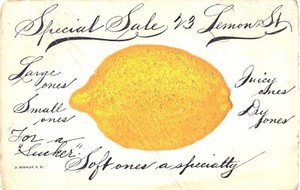 Special Sale 43 Lemon St.
Large ones
Small ones
For a "Sucker"
Juicy ones
Dry ones
Soft ones a specialty